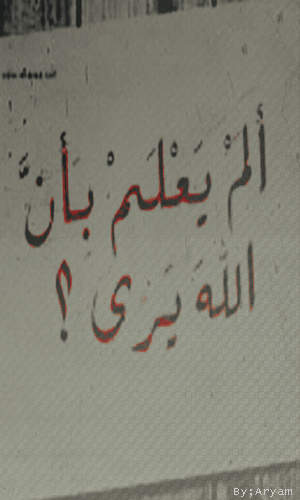 ألمْ يَعْلَمْ بأنَّ
اللهَ يَرَى ؟
By;Aryam